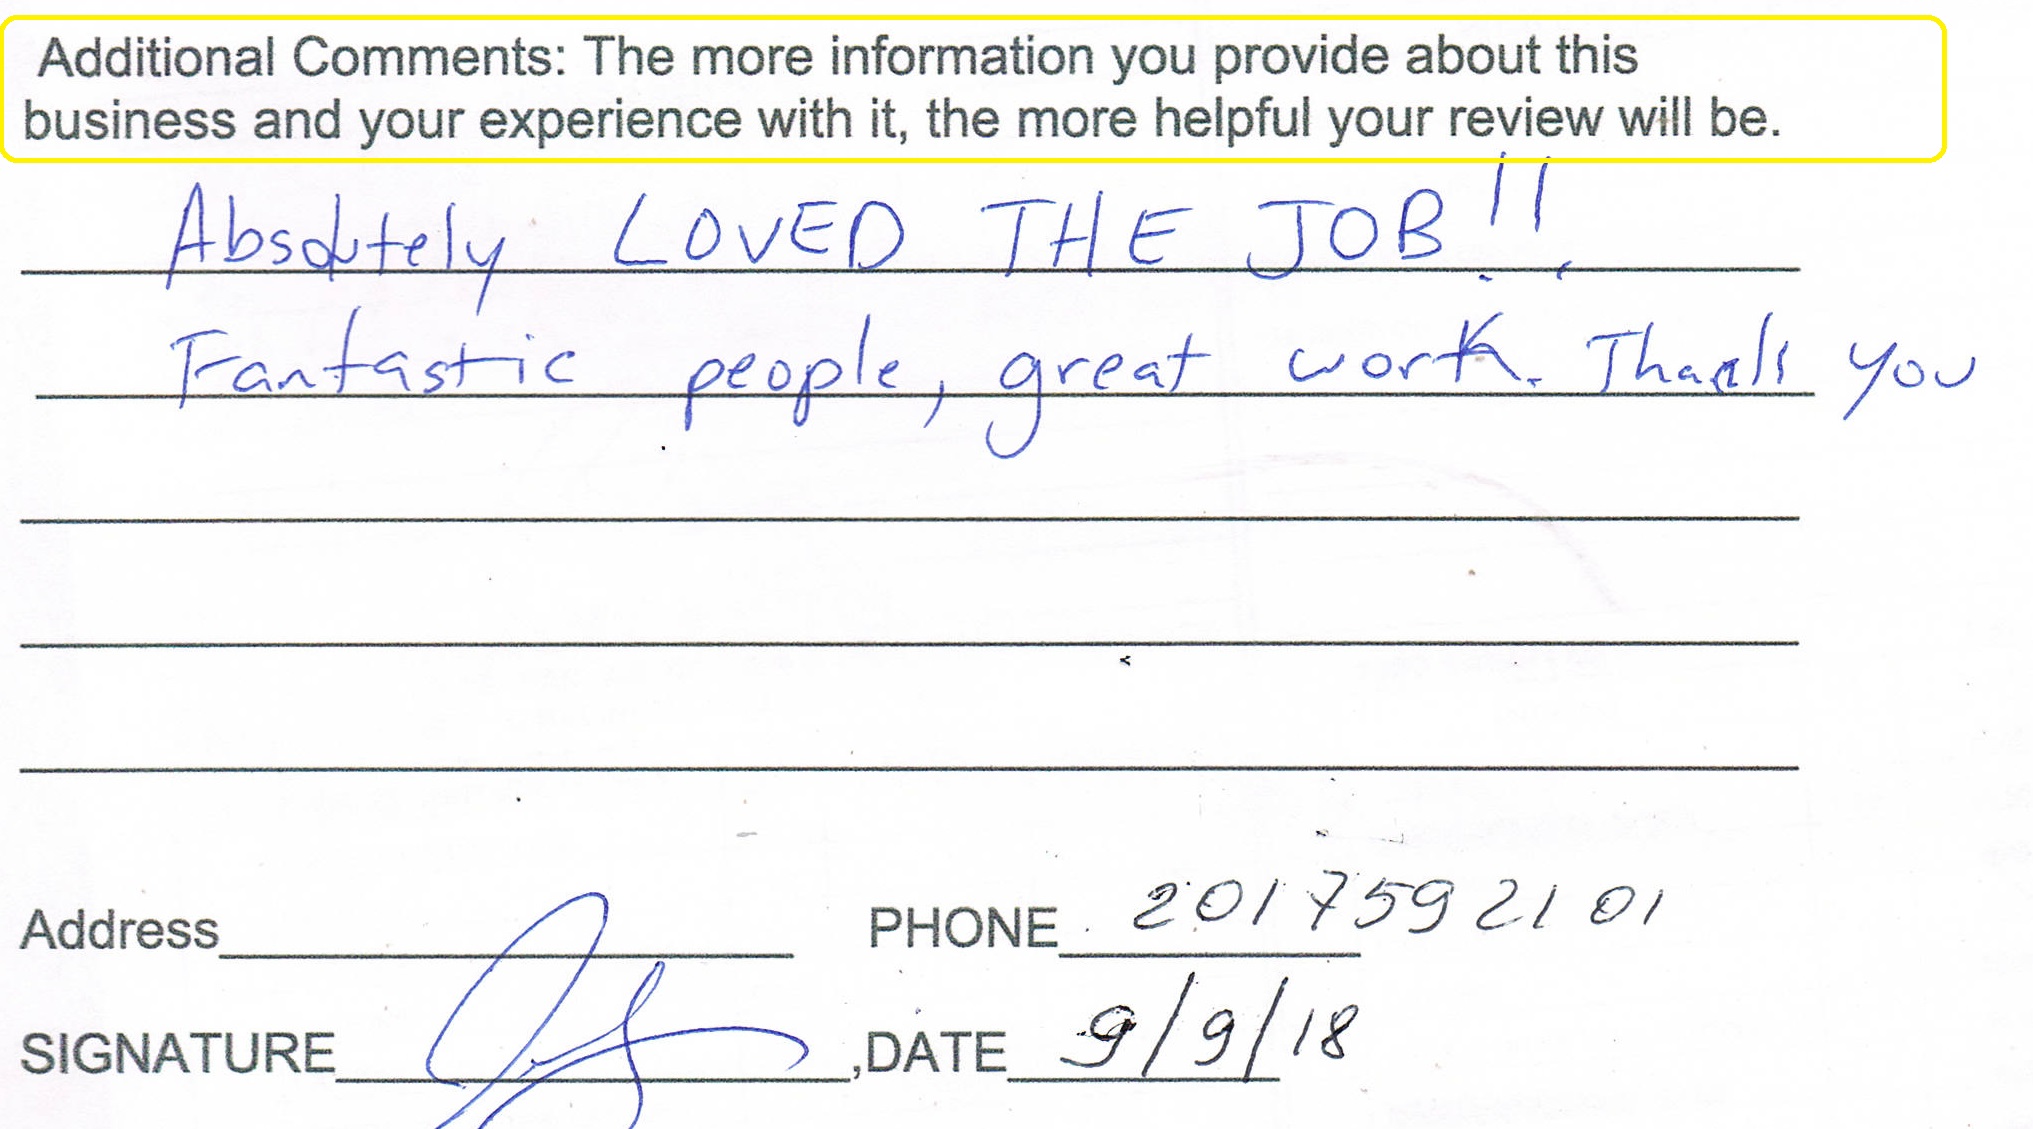 Additional Comments: The more information you provide about this
business and your experience with it, the more helpful your review will be.
Absolutely LOVED THE JOB!!
Fantastic people, great work. Thank you
Address PHONE 2017592101
SIGNATURE ,DATE 9/9/18